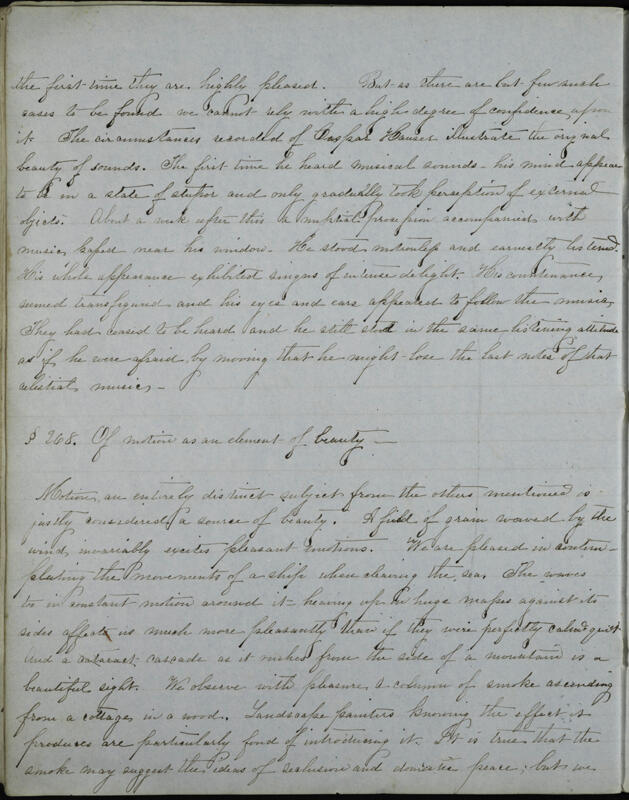 the first time they are highly pleased. But as there are but few such
cases to be found we cannot rely with a high degree of confidence upon
it. The circumstances recorded of Caspar Hauser illustrate the original
beauty of sounds. The first time he heard musical sounds - his mind appeared
to be in a state of stupor and only gradually took perception of external
objects. About a week after this a nuptial procession accompanied with
music passed near his window. He stood motionless and earnestly listened.
His whole appearance exhibited signs of intense delight. His countenance
seemed transfigured and his eyes and ears appeared to follow the music
They had ceased to be heard and he still stood in the same listening attitude
as if he were afraid by moving that he might lose the last notes of that
celestial music -
§ 268. Of motion as an element of beauty —
Motion, an entirely distinct subject from the others mentioned is
justly considered a source of beauty. A field of grain waved by the
wind, invariably excites pleasant emotions. We are pleased in contem-
plating the movements of a ship when clearing the sea. The waves
to in constant motion around it - heaving up in huge masses against its
sides affect us much more pleasantly than if they were perfectly calm & quiet
And a cataract, cascade as it rushes from the side of a mountain is a
beautiful sight. We observe with pleasure, a column of smoke ascending
from a cottage in a wood. Landscape painters knowing the effect it
produces are particularly fond of introducing it. It is true that the
smoke may suggest the ideas of seclusion and domestic peace; but we